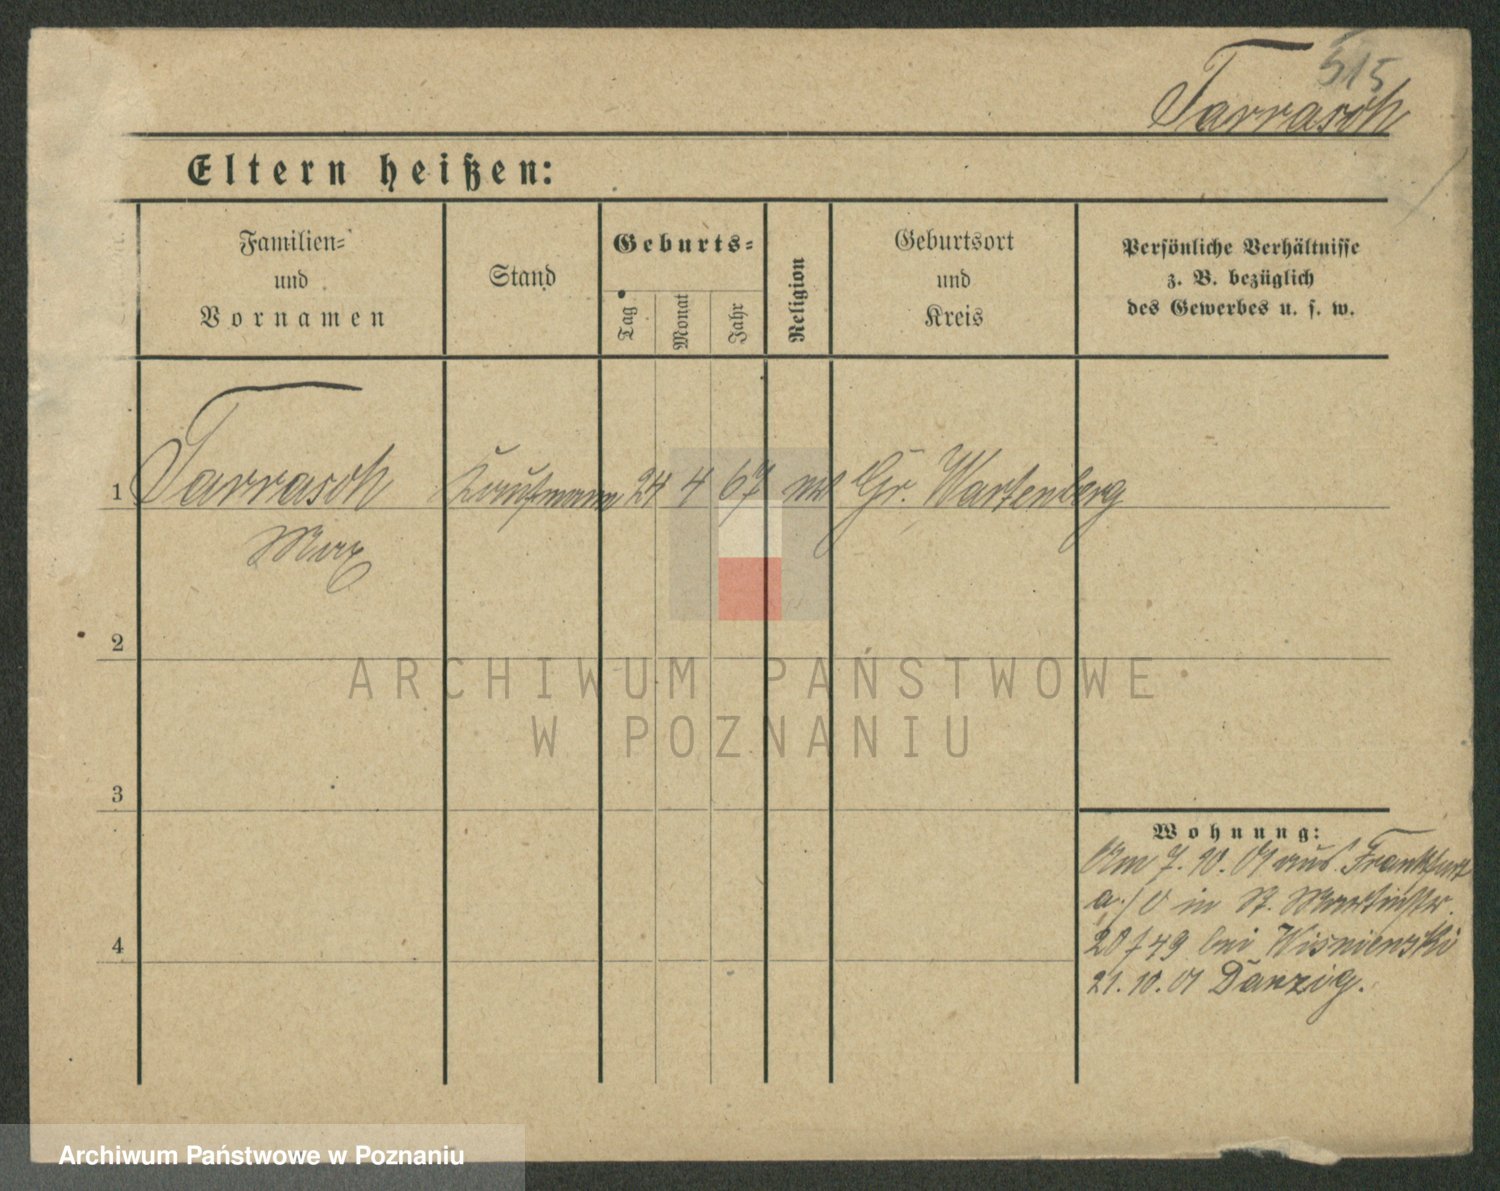 515
Tarrasch
Eltern heißen:
Familien=
und
Vornamen
Stand
Geburts=
Tag
Monat
Jahr
Religion
Geburtsort
und
Kreis
Persönliche Verhältnisse
z. B. bezüglich
des Gewerbes u. s. w.
1 Tarrasch Kaufmann 24 4 67 Gr. Wartenberg
Max
2
3
4
Wohnung:
Am 7.10.01 aus Frankfurt
a./O in St. Martinstr.
20/49 bei Wisnienski
21.10.01 Danzig.
ARCHIWUM PAŃSTWOWE
W POZNANIU
Archiwum Państwowe w Poznaniu